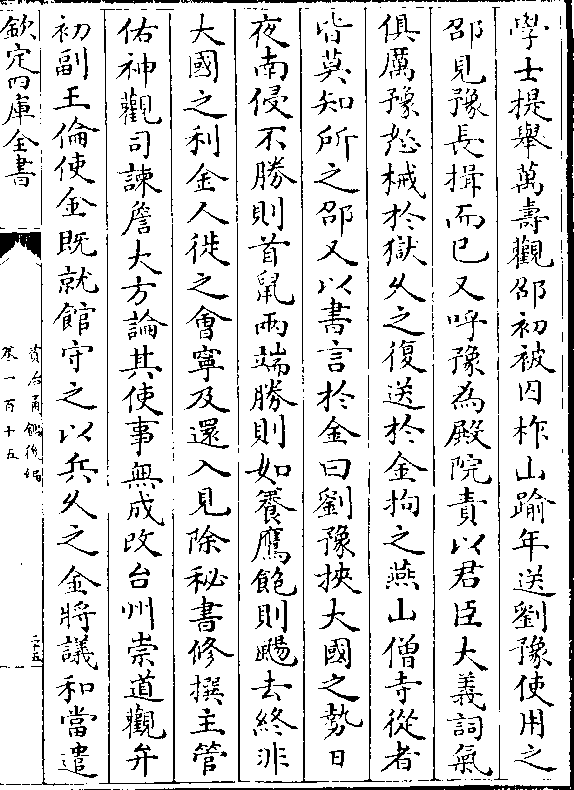 學士提舉萬壽觀邵初被囚柞山踰年送劉豫使用之
邵見豫長揖而已又呼豫為殿院責以君臣大義詞氣
俱厲豫怒械於獄久之復送於金拘之燕山僧寺從者
皆莫知所之邵又以書言於金曰劉豫挾大國之勢日
夜南侵不勝則首鼠兩端勝則如養鷹飽則颺去終非
大國之利金人徙之會寧及還入見除秘書修撰主管
佑神觀司諫詹大方論其使事無成改台州崇道觀弁
初副王倫使金既就館守之以兵久之金將議和當遣
欽定四庫全書
資治通鑑後編
卷一百十五
二十五